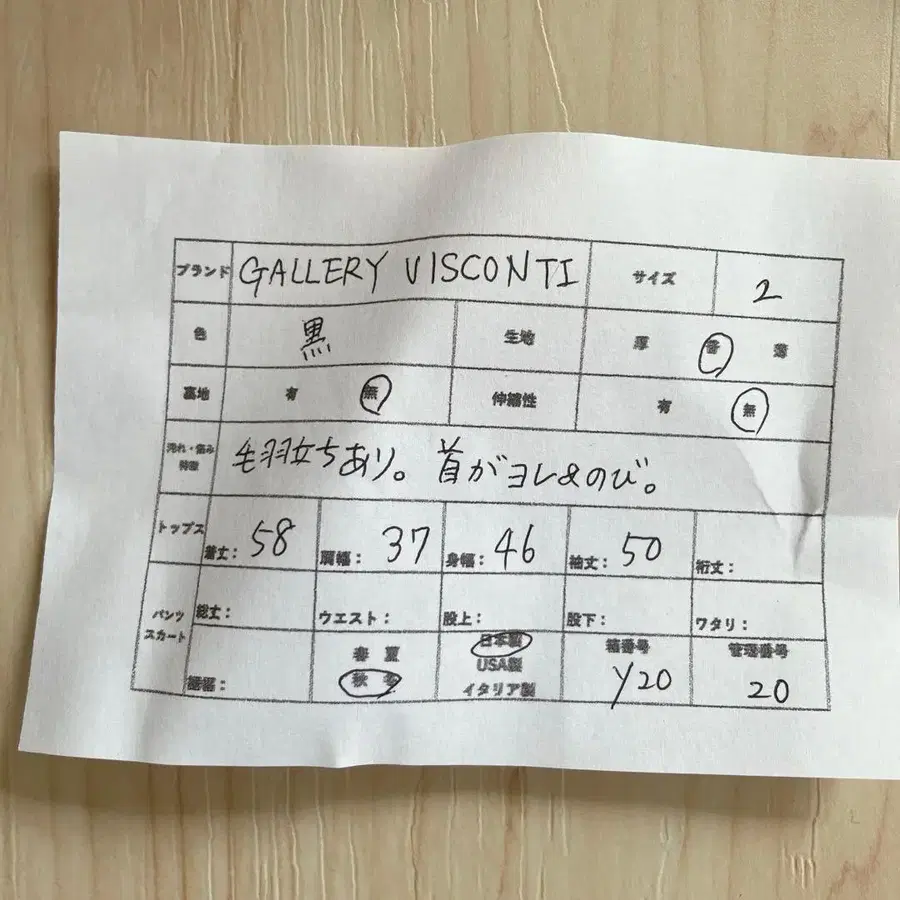 ブランド GALLERY VISCONTI サイズ 2
色 黒 生地 厚 普 薄
裏地 有 無 伸縮性 有 無
汚れ・傷み
特徴
毛羽立ちあり。首がヨレ&のび。
トップス 着丈: 58 肩幅: 37 身幅: 46 袖丈: 50 裄丈:
パンツ
スカート
総丈: ウエスト: 股上: 股下: ワタリ:
裾幅: 春 夏
秋 冬
日本製
USA製
イタリア製
箱番号
Y20
管理番号
20